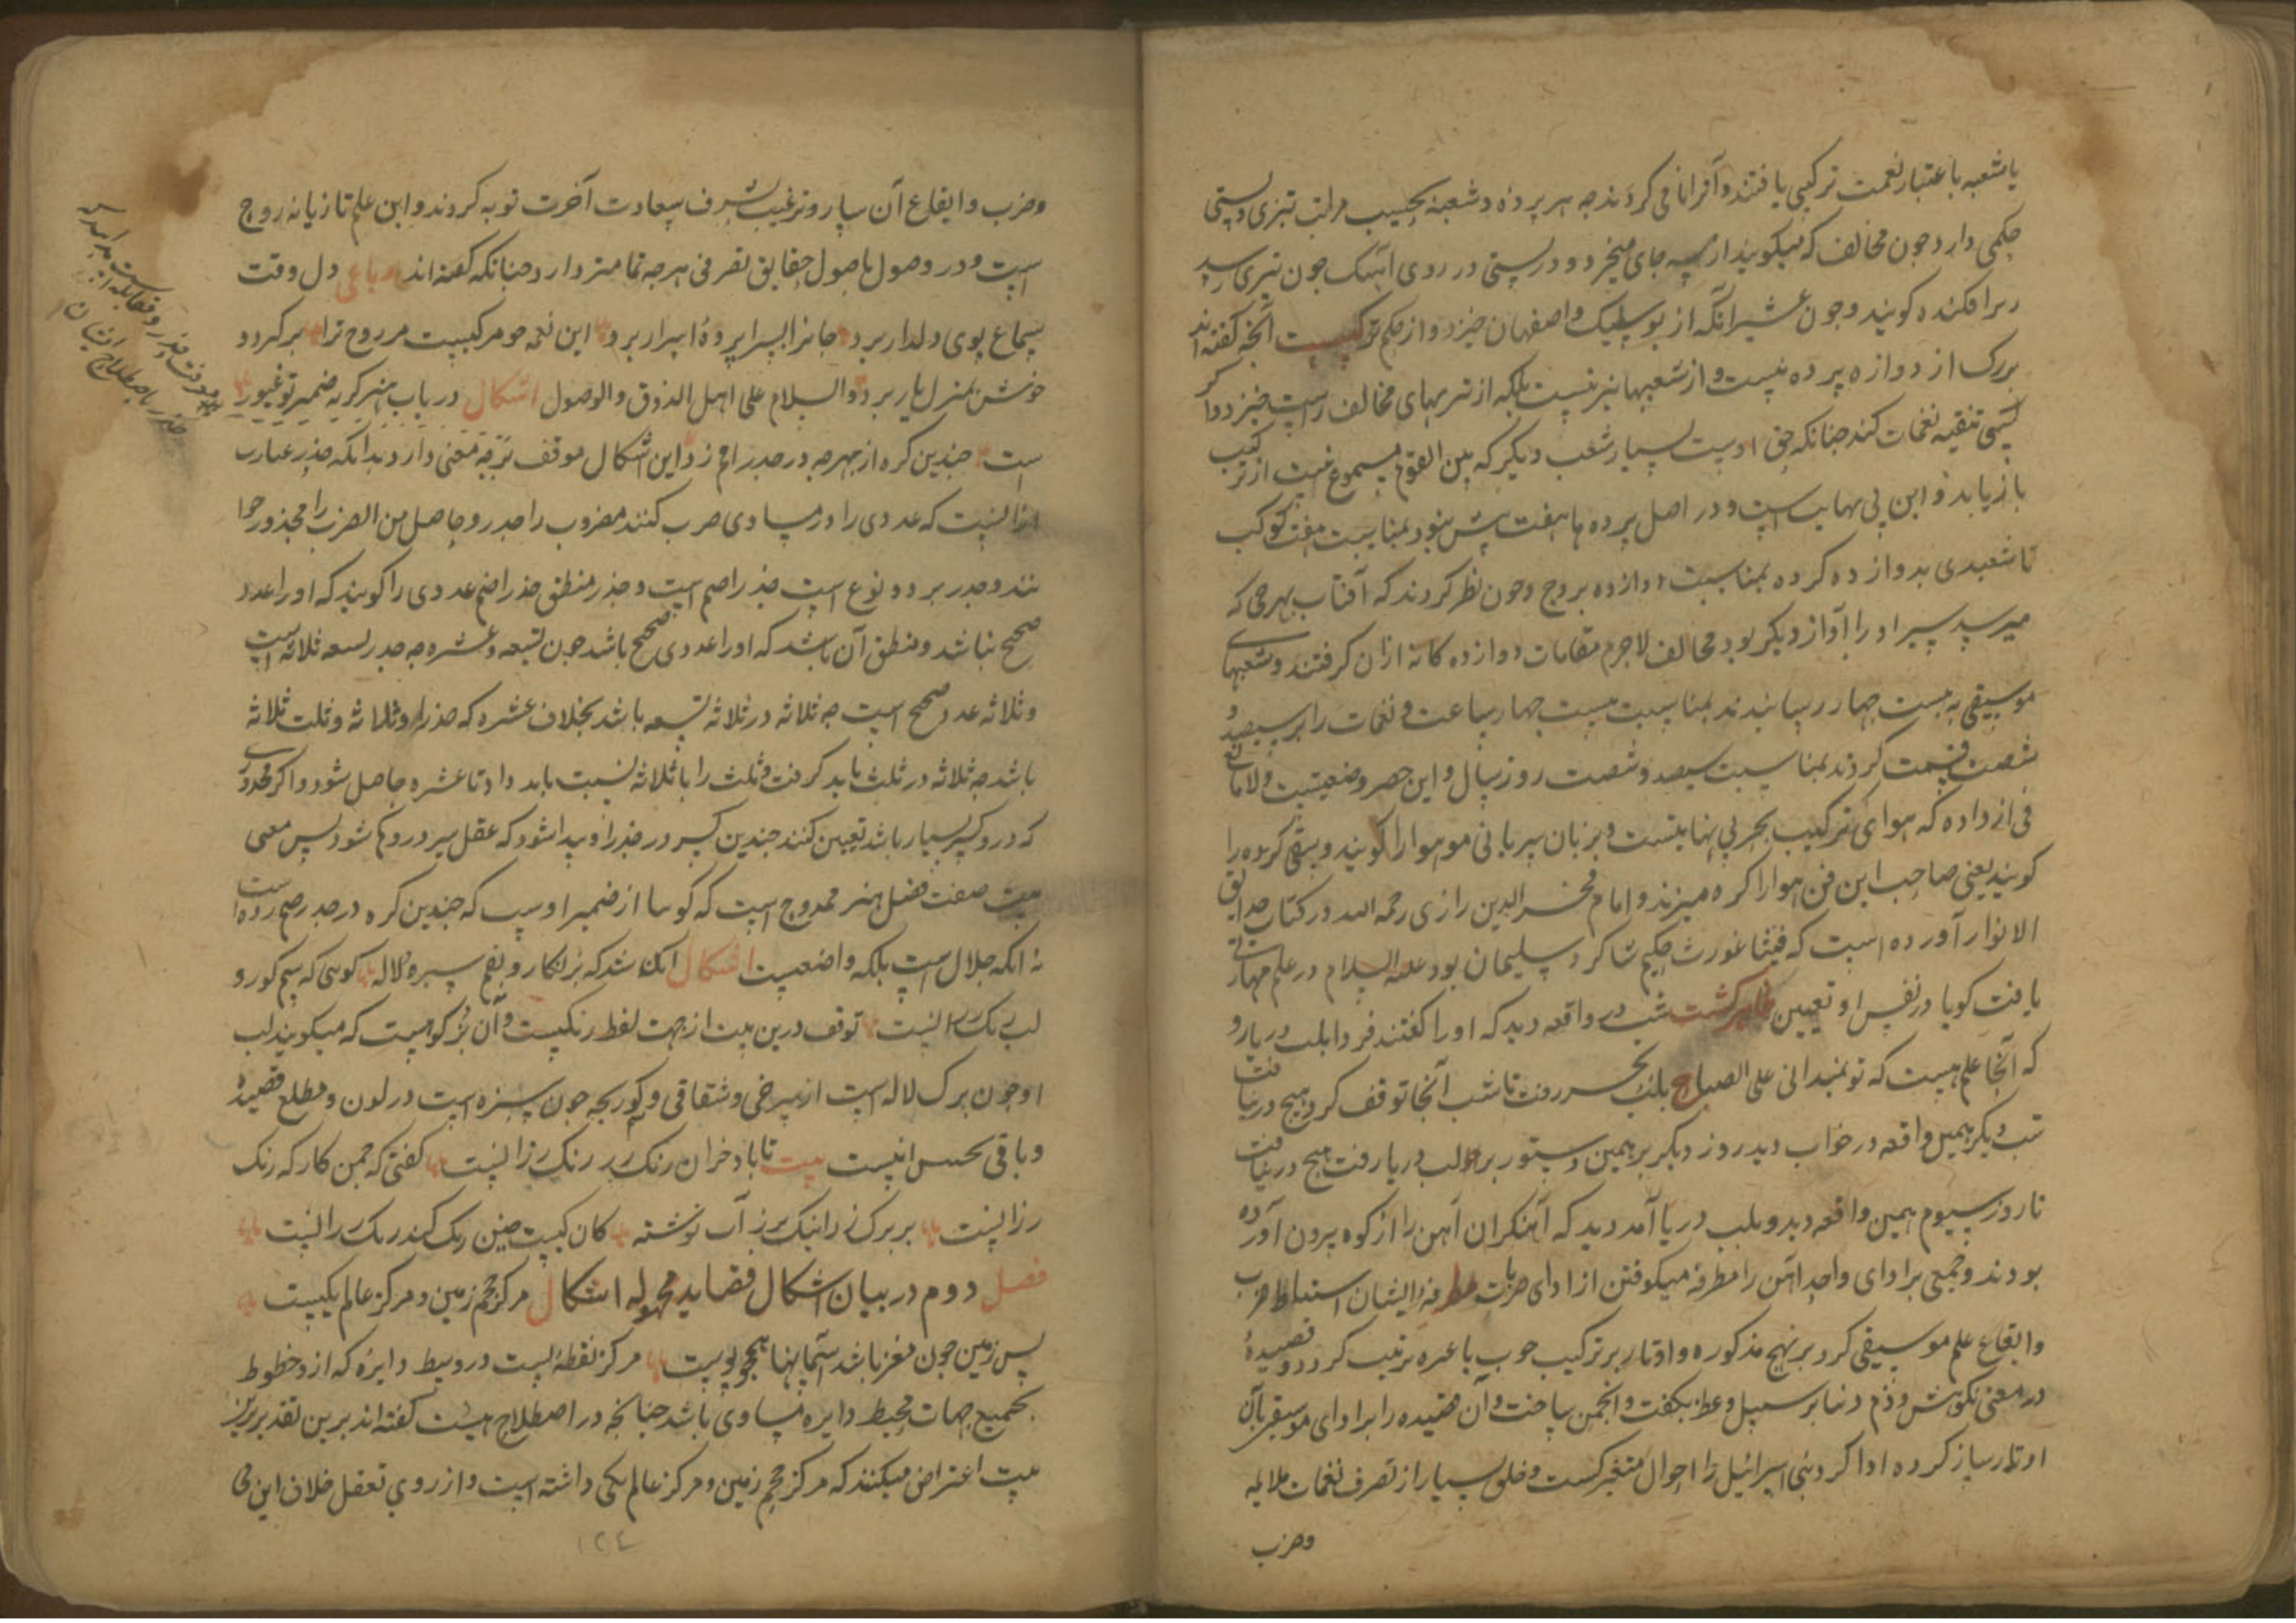 یا شعبه باعتبار نغمت ترکیبی یافتند و آنرا نامی کردند چه هر پرده و شعبه بحسب مراتب تیزی و پستی
حکمی دارد چون مخالف که میگویند از سه جای میخیزد و در پستی در روی آهنک چون تیزی رسید
را افکنده گویند و چون عشیرا آنکه از بوسلیک و اصفهان خیزد و از حکم ترکیبست آنچه گفته اند
بزرک از دوازه پرده نیست و از شعبها نیز نیست بلکه از تیزیهای مخالف راست خیزد و اگر
کسی تنقیه نغمات کند چنانکه حق اوست بسیار شعب دیگر که بین القوم مسموع نیست از ترکیب
بازیابد و این بی نهایت است و در اصل پرده ها هفت بیش نبود بمناسبت هفت کوکب
تا شعبدی بدوازده کرده بمناسبت دوازده بروج و چون نظر کردند که آفتاب بهر جی که
میرسد سیر او را آواز دیگر بود مخالف لاجرم مقامات دوازده کانه ازان گرفتند و شعبهای
موسیقی به بیست چهار رسانیدند بمناسبت بیست چهار ساعت و نغمات را بر سیصد و
شصت قسمت کردند بمناسبت سیصد و شصت روز سال و این حصر وضعیتیست و لا مانع
فی ازداده که هوای ترکیب بحر بی نهایتست و بزبان سریانی مو هوا را گویند و سقی کرده را
گویند یعنی صاحب این فن هوا را کره میزند و امام فخر الدین رازی رحمه الله در کتاب حدایق
الانوار آورده است که فیثاغورث حکیم شاکرد سلیمان بود علیه السلام در علم مهارتی
یافت گویا در نفس او تعیین ظاهر کشت شب در واقعه دید که او را گفتند فردا بلب دریا رو
که آنجا علمیست که تو نمیدانی علی الصباح بلب بحر رفت تا شب آنجا توقف کرد هیچ در نیافت
شب دیگر همین واقعه در خواب دید روز دیگر بر همین دستور بر لب دریا رفت هیچ در نیافت
تا روز سیوم همین واقعه دید و بلب دریا آمد دید که آهنگران آهن را از کوه بیرون آورده
بودند و جمعی بر ادای واحد آهن را مطرقه میکوفتن از ادای ضربات مطرقه ایشان استنباط ضرب
و ایقاع علم موسیقی کرد بر نهج مذکوره و اوتار بر ترکیب چوب با غیره ترتیب کرد و قصیدهٔ
در معنی نکوهش و ذم دنیا بر سبیل وعظ بگفت و انجمن ساخت و آن قصیده را برا دای موسیقی بآن
اوتار ساز کرده ادا کرد بنی اسرائیل را احوال متغیر گشت و خلق بسیار از تصرف نغمات ملایمه
وضرب
وضرب و ایقاع آن ساز و ترغیب بشرف سعادت آخرت توبه کردند و این علم تازیانه روح
است و در وصول باصول حقایق تصرفی هرچه تمامتر دارد چنانکه گفته اند رباعی دل وقت
سماع بوی دلدار برد جانرا بسراپردهٔ اسرار برد این نغمه چو مرکبیست مر روح ترا برگیرد و
خوش بمنزل یار برد والسلام علی اهل الذوق والوصول اشکال در باب هنر گر به ضمیر تو غیور
است چندین کره از بهر چه در جدر اصم زد این اشکال موقف بر چه معنی دارد بدانکه جذر عبارت
ازانست که عددی را در مساوی ضرب کنند مضروب را جدر و حاصل من الضرب را مجذور خوا
نند و جدر بر دو نوع است جذر اصم است و جذر منطق جذر اصم عددی را گویند که او را عدد
صحیح نباشد و منطق آن باشد که او را عددی صحیح باشد چون تسعه و عشره چه جدر تسعه ثلاثه است
و ثلاثه عدد صحیح است چه ثلاثه در ثلاثه تسعه باشد بخلاف عشره که جذر او ثلاثه و ثلث ثلاثه
باشد چه ثلاثه در ثلث باید گرفت و ثلث را با ثلاثه نسبت باید داد تا عشره حاصل شود و اکر مجذوری
که در و کسر بسیار باشد تعیین کنند چندین کسر در جذر او پیدا شود که عقل سر در و گم شود پس معنی
بیت صفت فضل هنر ممدوح است که گویا از ضمیر اوست که چندین کره در جدر اصم زده است
نه انکه حلال است بلکه واضعیست اشکال آنک شد که بزنگار و بقم سبزه و لاله کوهی که سیم کور و
لب رنک رزانست توقف درین بیت از جهت لفظ رنکیست و آن بز کوهیست که میگویند لب
او چون برک لاله است از سرخی و شقاقی و کوربچه چون سبزه است در لون و مطلع قصیده
و باقی تحسین انیست بیت تا باد خزان رنک رز رنک رزانست گفتی که چمن کار که رنک
رزانست بر برک رزانیک بزر آب نوشته کان کیست چنین رنک کند رنک رزانست
فصل دوم در بیان اشکال قصاید مجهوله اشکال مرکز حجم زمین و مرکز عالم یکیست
پس زمین چون مغز باشد آسمانها همچو پوست مرکز نقطه ایست در وسط دایره که ازو خطوط
بجمیع جهات محیط دایره مساوی باشد چنانچه در اصطلاح هیئت گفته اند برین تقدیر برین
بیت اعتراض میکنند که مرکز حجم زمین و مرکز عالم یکی داشته است و از روی تعقل خلاف این می
۱۲٤